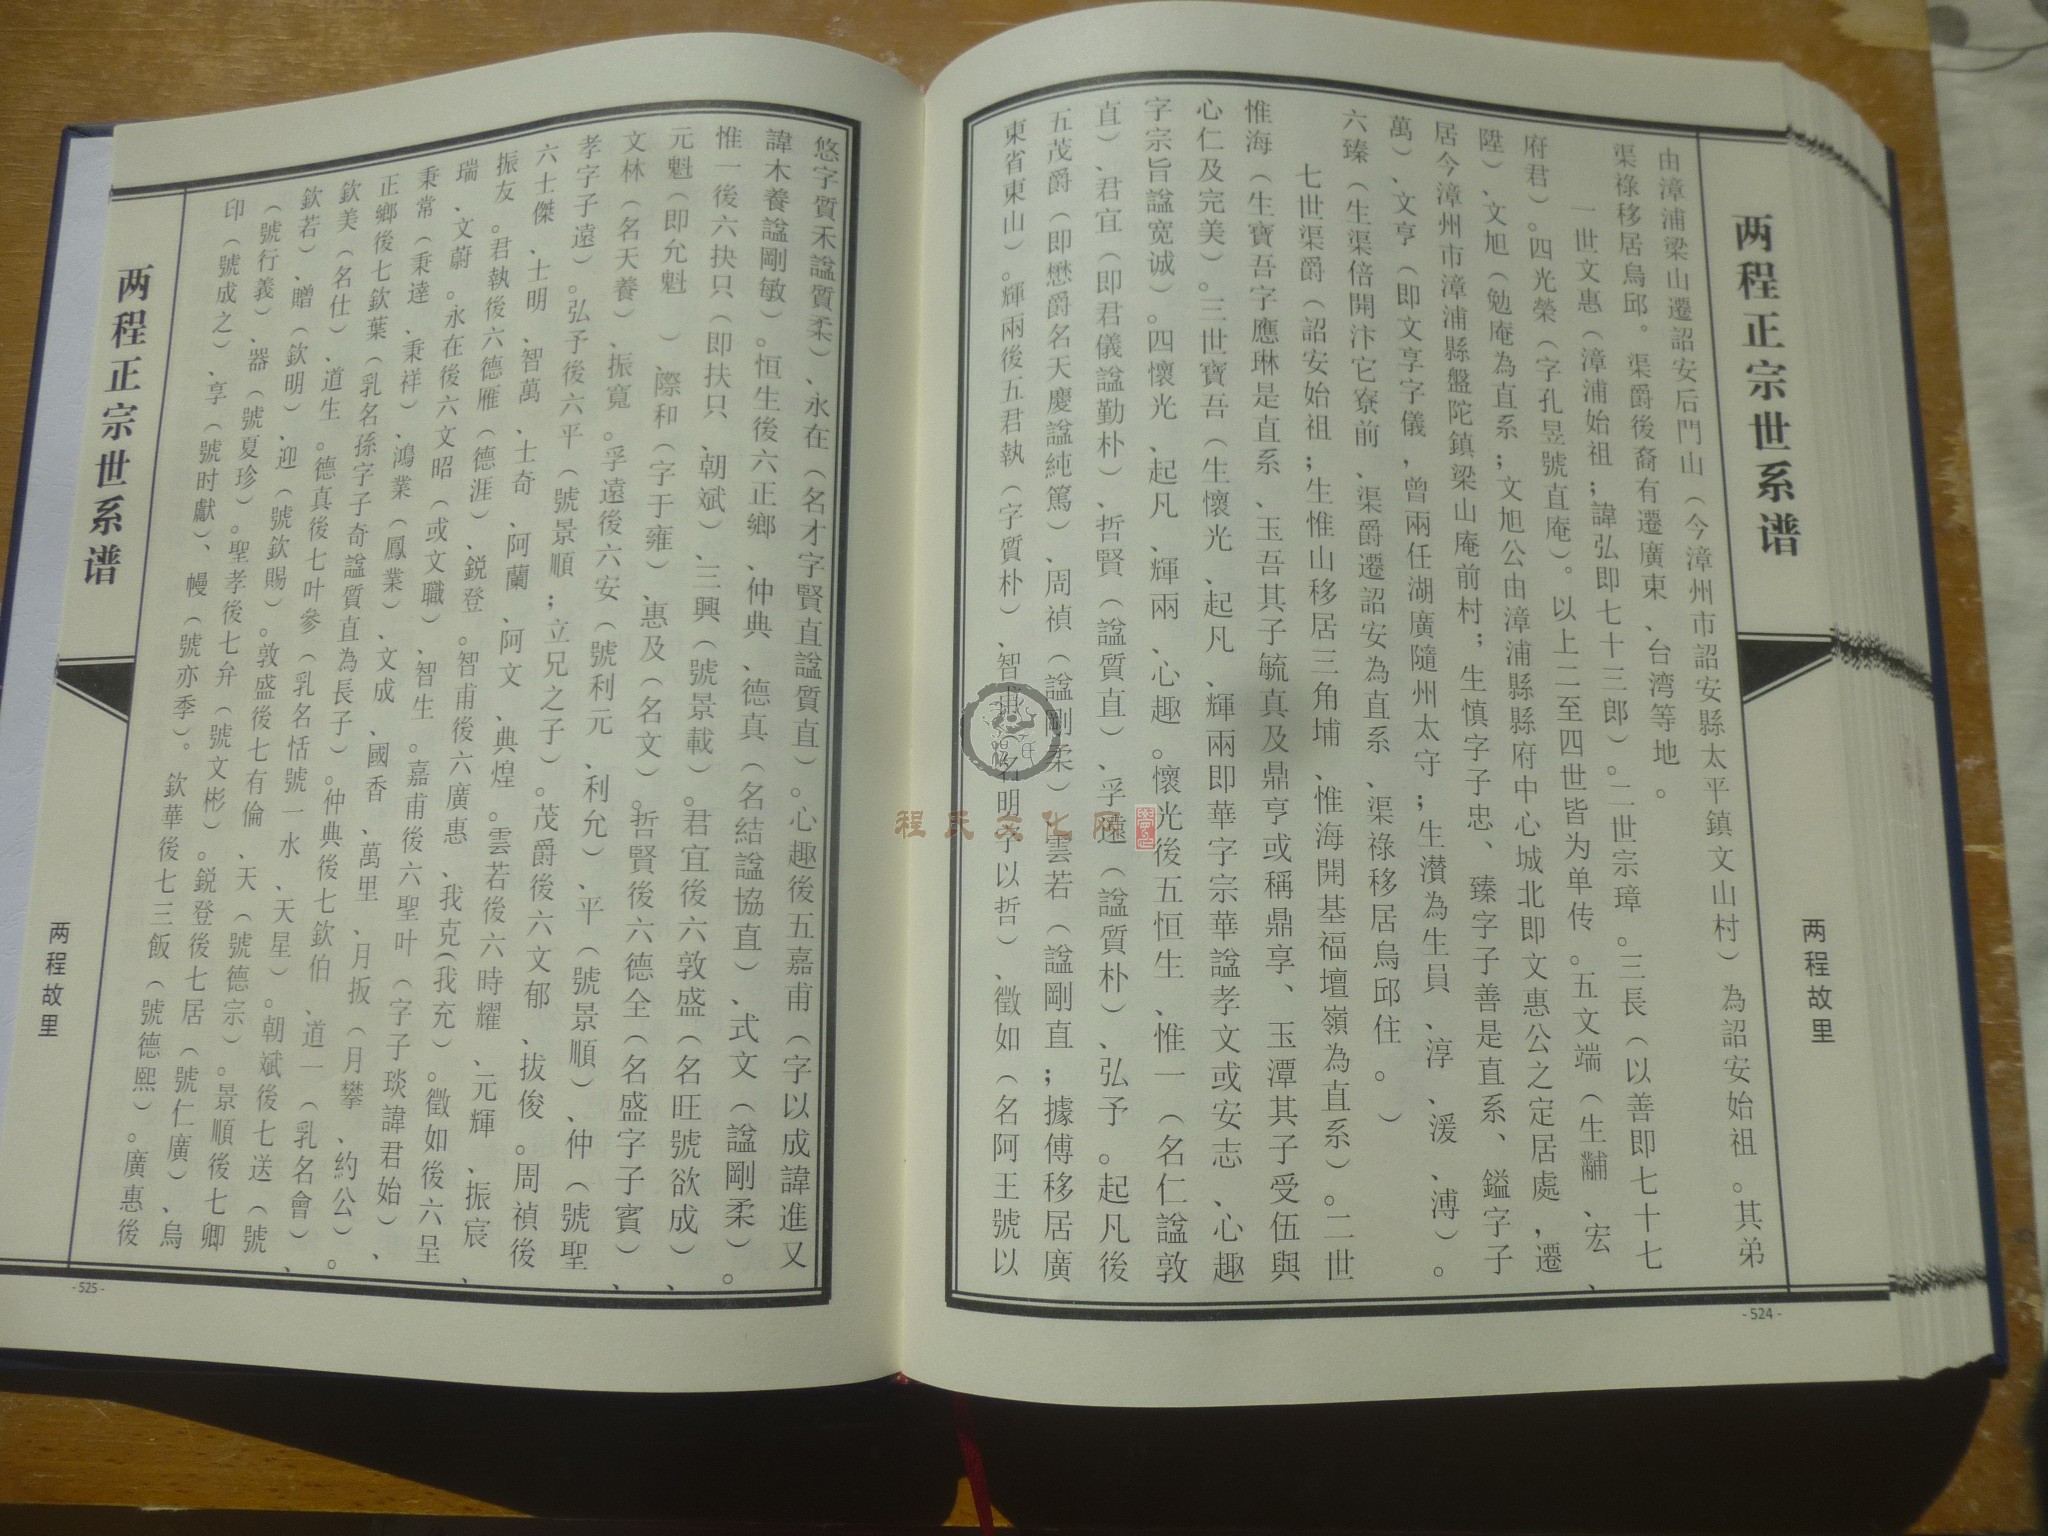 两程正宗世系谱
两程故里
由漳浦梁山遷詔安后門山（今漳州市詔安縣太平鎮文山村）為詔安始祖。其弟
渠祿移居烏邱。渠爵後裔有遷廣東、台湾等地。
一世文惠（漳浦始祖；諱弘即七十三郎）。二世宗璋。三長（以善即七十七
府君）。四光榮（字孔昱號直庵）。以上二至四世皆为单传。五文端（生黼、宏、
陞）、文旭（勉庵為直系；文旭公由漳浦縣府中心城北即文惠公之定居處，遷
居今漳州市漳浦縣盤陀鎮梁山庵前村；生慎字子忠、臻字子善是直系、鎰字子
萬）、文亨（即文享字儀，曾兩任湖廣隨州太守；生潜為生員、淳、湲、溥）。
六臻（生渠倍開汴它寮前、渠爵遷詔安為直系、渠祿移居烏邱住。）
七世渠爵（詔安始祖；生惟山移居三角埔、惟海開基福壇嶺為直系）。二世
惟海（生寶吾字應琳是直系、玉吾其子毓真及鼎亨或稱鼎享、玉潭其子受伍與
心仁及完美）。三世寶吾（生懷光、起凡、輝兩即華字宗華諡孝文或安志、心趣
字宗旨諡宽诚）。四懷光、起凡、輝兩、心趣。懷光後五恒生、惟一（名仁諡敦
直）、君宜（即君儀諡勤朴）、哲賢（諡質直）、孚遠（諡質朴）、弘予。起凡後
五茂爵（即懋爵名天慶諡純篤）、周禎（諡剛柔）、雲若（諡剛直；據傅移居廣
東省東山）。輝兩後五君執（字質朴）、智甫（名明字以哲）、徵如（名阿王號以
- 524 -
悠字質禾諡質柔）、永在（名才字賢直諡質直）。心趣後五嘉甫（字以成諱進又
諱木養諡剛敏）。恒生後六正鄉、仲典、德真（名結諡協直）、式文（諡剛柔）。
惟一後六抉只（即扶只、朝斌）、三興（號景載）。君宜後六敦盛（名旺號欲成）、
元魁（即允魁）、際和（字于雍）、惠及（名文）。哲賢後六德全（名盛字子賓）、
文林（名天養）、振寬。孚遠後六安（號利元、利允）、平（號景順）、仲（號聖
孝字子遠）。弘予後六平（號景順；立兄之子）。茂爵後六文郁、拔俊。周禎後
六士傑、士明、智萬、士奇、阿蘭、阿文、典煌。雲若後六時耀、元輝、振宸、
振友。君執後六德雁（德涯）、鋭登。智甫後六廣惠、我克（我充）。徵如後六呈
瑞、文蔚。永在後六文昭（或文職）、智生。嘉甫後六聖叶（字子琰諱君始）、
秉常（秉達、秉祥）、鴻業（鳳業）、文成、國香、萬里、月扳（月攀、約公）。
正鄉後七欽葉（乳名孫字子奇諡質直為長子）。仲典後七欽伯、道一（乳名會）、
欽美（名仕）、道生。德真後七叶參（乳名恬號一水、天星）。朝斌後七送（號
欽若）、贈（欽明）、迎（號欽賜）。敦盛後七有倫、天（號德宗）。景順後七卿
（號行義）、器（號夏珍）。聖孝後七弁（號文彬）。鋭登後七居（號仁廣）、烏
印（號成之）、享（號时獻）、幔（號亦季）。欽華後七三飯（號德熙）。廣惠後
两程正宗世系谱
两程故里
- 525 -
程氏文化网